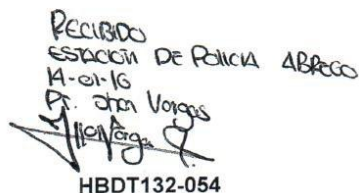 RECIBIDO
ESTACION DE POLICIA ABREGO
14-01-16
PT. Jhon Vargas
HBDT132-054